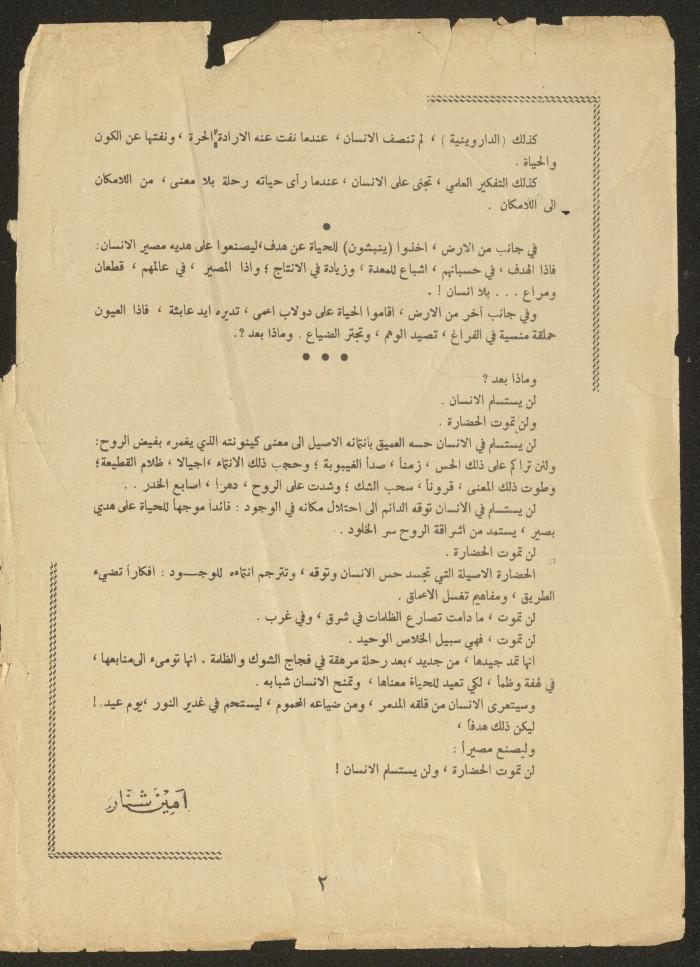 كذلك (الداروينية) ، لم تنصف الانسان ، عندما نفت عنه الارادة الحرة ، ونفتها عن الكون
والحياة .
كذلك التفكير العلمي ، تجنى على الانسان ، عندما رأى حياته رحلة بلا معنى ، من اللامكان
الى اللامكان .
●
في جانب من الارض ، اخذوا (ينبشون) للحياة عن هدف،ليصنعوا على هديه مصير الانسان:
فاذا الهدف ، في حسبانهم ، اشباع للمعدة ، وزيادة في الانتاج ؛ واذا المصير ، في عالمهم ، قطعان
ومراع . . . بلا انسان ! .
وفي جانب آخر من الارض ، اقاموا الحياة على دولاب اعمى ، تديره ايد عابثة ، فاذا العيون
حملقة منسية في الفراغ ، تصيد الوهم ، وتجتر الضياع . وماذا بعد ؟.
● ● ●
وماذا بعد ؟
لن يستسلم الانسان .
ولن تموت الحضارة .
لن يستسلم في الانسان حسه العميق بانتمائه الاصيل الى معنى كينونته الذي يغمره بفيض الروح:
ولئن تراكم على ذلك الحس ، زمناً ، صدأ الغيبوبة ؛ وحجب ذلك الانتماء ،اجيالا ، ظلام القطيعة؛
وطوت ذلك المعنى ، قروناً ، سحب الشك ؛ وشدت على الروح ، دهراً ، اصابع الخدر . .
لن يستسلم في الانسان توقه الدائم الى احتلال مكانه في الوجود : قائداً موجهاً للحياة على هدي
بصير ، يستمد من اشراقة الروح سر الخلود .
لن تموت الحضارة .
الحضارة الاصيلة التي تجسد حس الانسان وتوقه ، وتترجم انتماءه للوجـــود : افكاراً تضيء
الطريق ، ومفاهيم تغسل الاعماق .
لن تموت ، ما دامت تصارع الظلمات في شرق ، وفي غرب .
لن تموت ، فهي سبيل الخلاص الوحيد .
انها تمد جيدها ، من جديد ،بعد رحلة مرهقة في فجاج الشوك والظلمة . انها تومىء الى منابعها ،
في لهفة وظمأ ، لكي تعيد للحياة معناها ، وتمنح الانسان شبابه .
وسيتعرى الانسان من قلقه المدمر ، ومن ضياعه المحموم ، ليستحم في غدير النور ،يوم عيد. !
ليكن ذلك هدفاً ،
وليصنع مصيراً :
لن تموت الحضارة ، ولن يستسلم الانسان !
امين شنار
٢